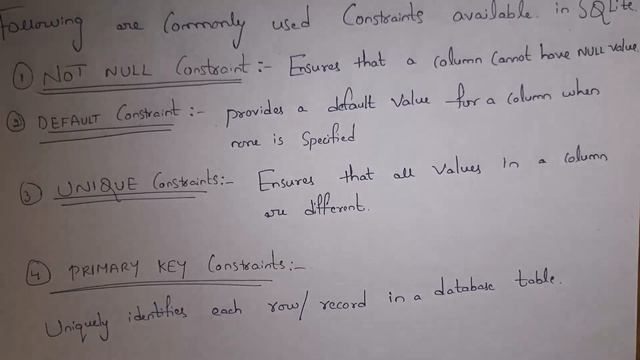 Following are Commonly used Constraints available in SQLite.
① NOT NULL Constraint :- Ensures that a column Cannot have NULL value
② DEFAULT Constraint :- provides a default value for a column when
none is specified
③ UNIQUE Constraints :- Ensures that all values in a column
are different.
④ PRIMARY KEY Constraints :-
Uniquely identifies each row/record in a database table.